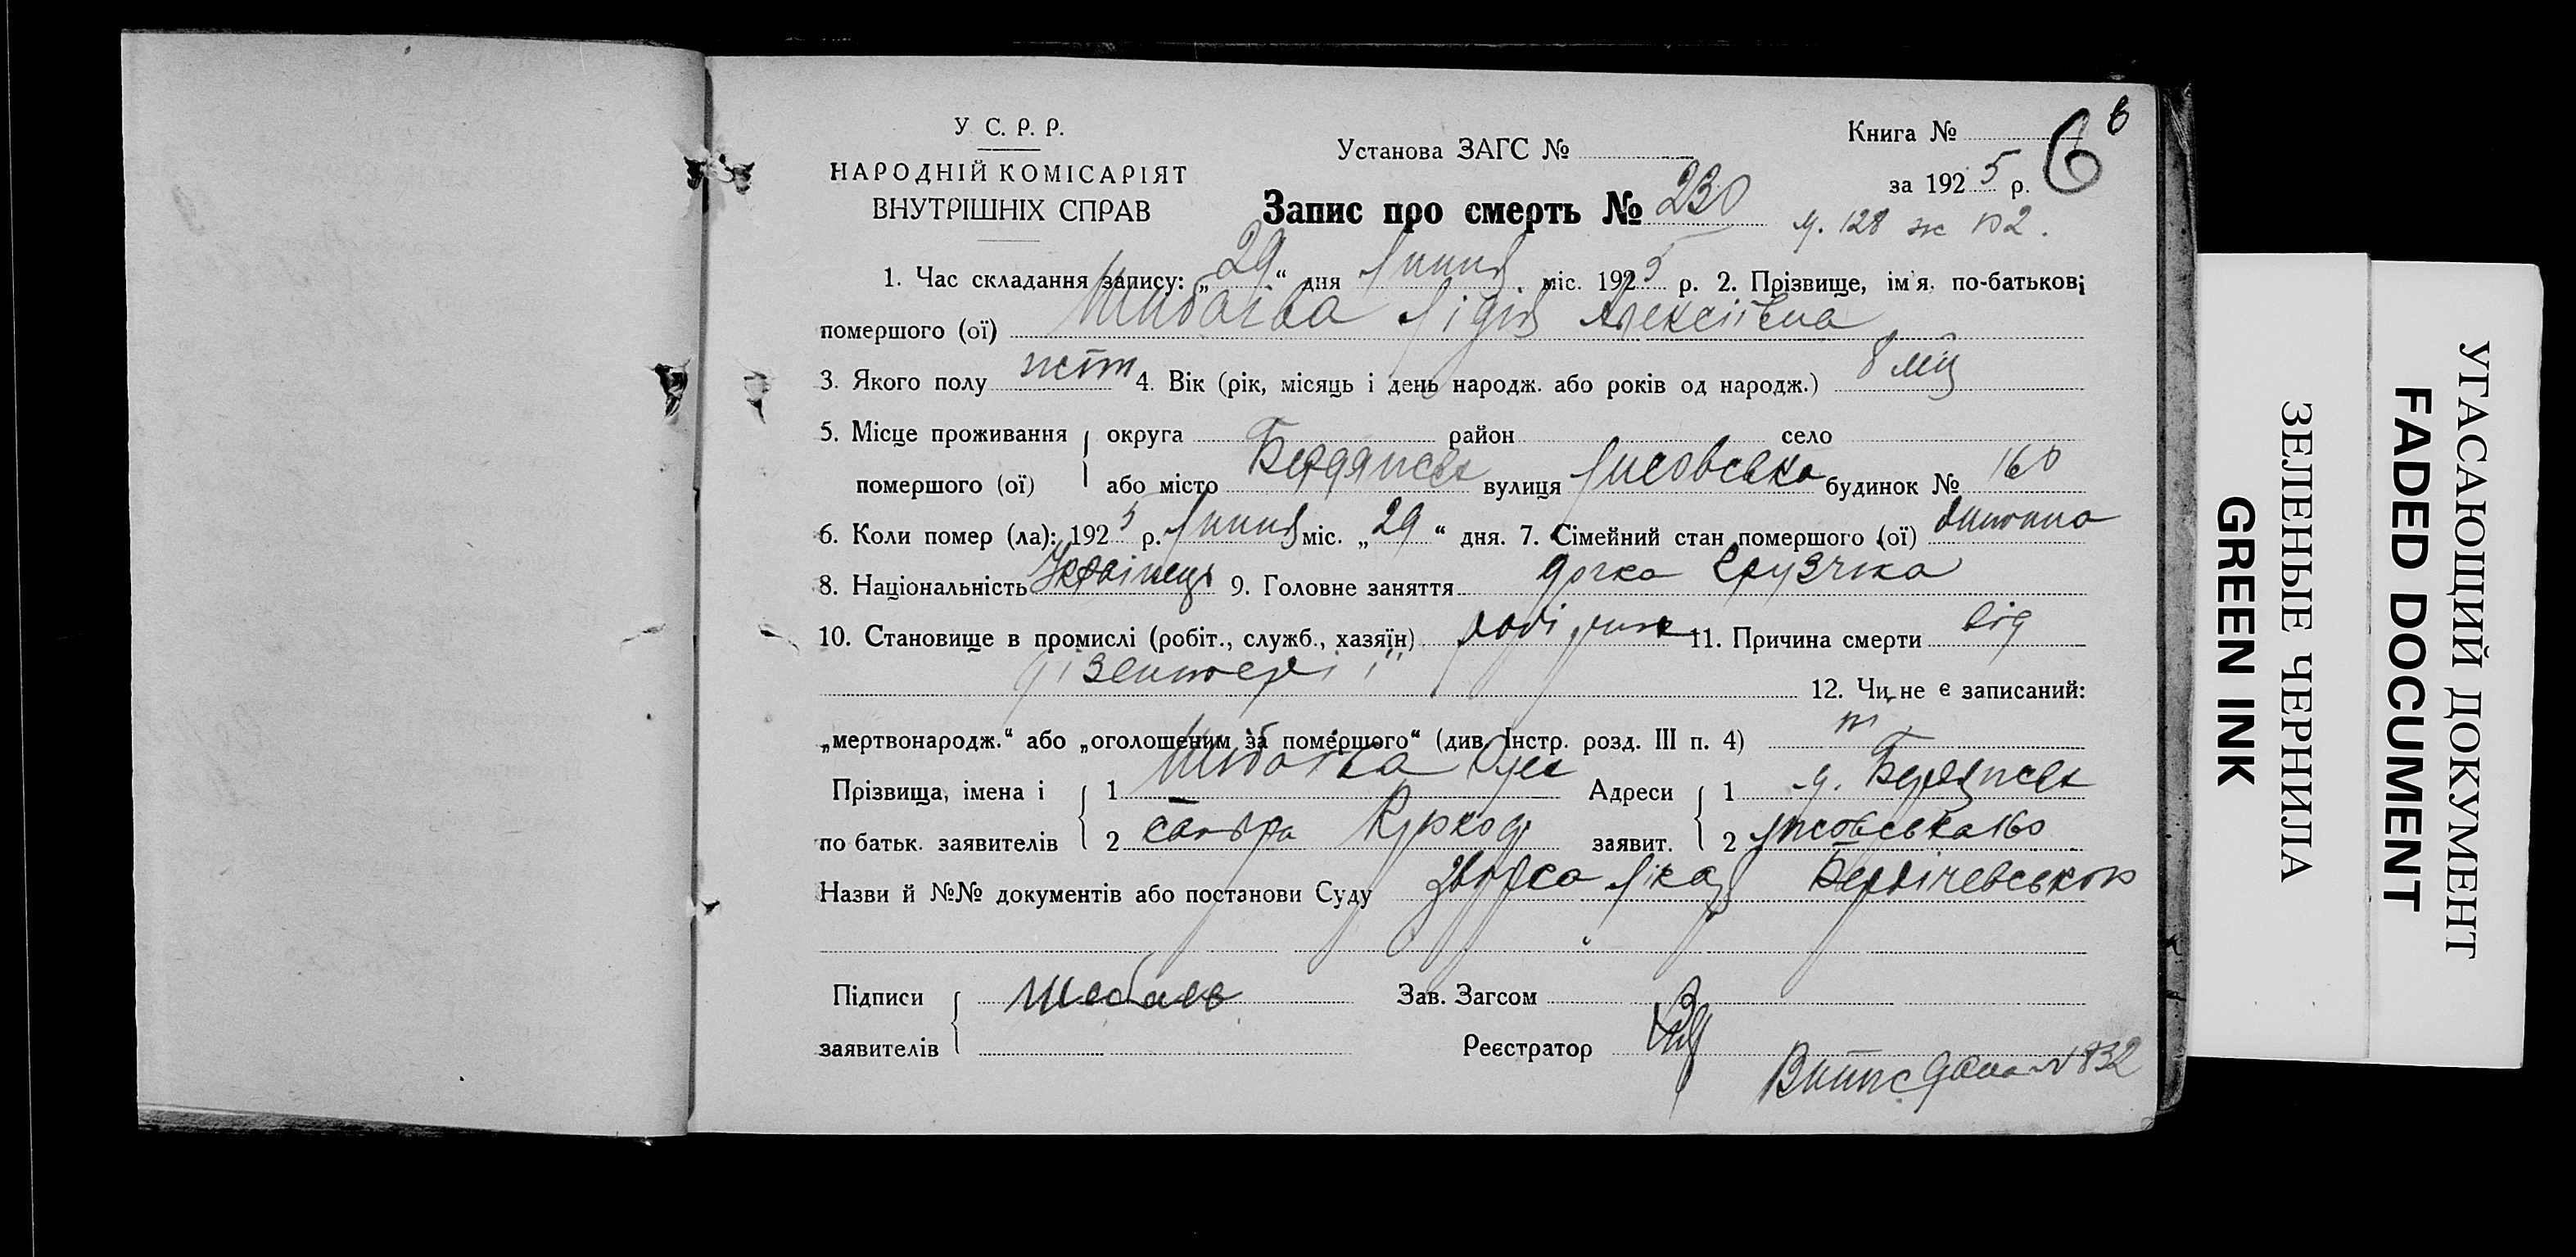 6
У. С. Р. Р.
НАРОДНІЙ КОМІСАРІЯТ
ВНУТРІШНІХ СПРАВ
Установа ЗАГС №
Книга №
за 1925 р.
6
Запис про смерть № 230
м. 128 ж 102.
1. Час складання запису: „29“ дня липня міс. 1925 р. 2. Прізвище, ім'я, по-батькові
помершого (ої) Шибаєва Лідія Алексіївна
3. Якого полу жіт 4. Вік (рік, місяць і день народж. або років од народж.) 8 міц
5. Місце проживання округа район село
помершого (ої) або місто Бердянськ вулиця Лисовська будинок № 160
6. Коли помер (ла): 1925 р. липня міс. „29“ дня. 7. Сімейний стан помершого (ої) дитина
8. Національність Українець 9. Головне заняття дочка грузчика
10. Становище в промислі (робіт., служб., хазяїн) робітник 11. Причина смерти від
дізентерії 12. Чи не є записаний:
„мертвонародж.“ або „оголошеним за помершого“ (див. Інстр. розд. III п. 4) ні
Прізвища, імена і 1 Шибаєва Адреси 1 м. Бердянськ
по батьк. заявителів 2 заявит. 2 Лисовська 160
Назви й №№ документів або постанови Суду лікар Бердічевського
Підписи Шебаев Зав. Загсом
заявителів Реєстратор
Витяг дана № 832
УГАСАЮЩИЙ ДОКУМЕНТ
FADED DOCUMENT
ЗЕЛЕНЫЕ ЧЕРНИЛА
GREEN INK